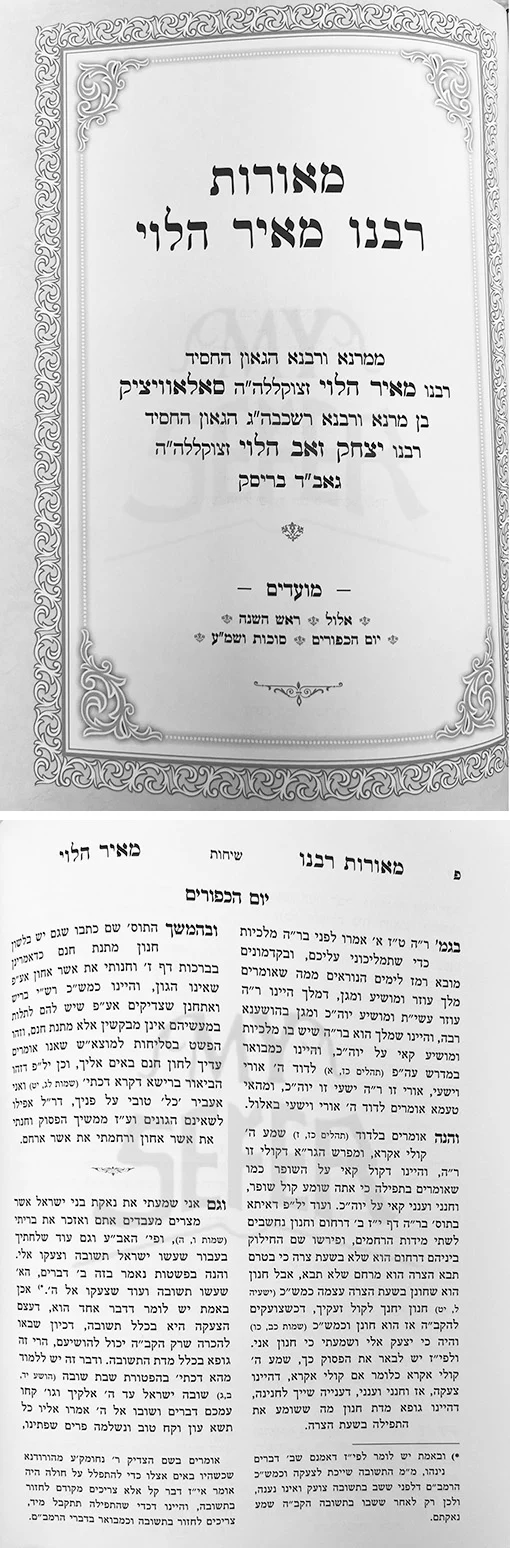 מאורות
רבנו מאיר הלוי
ממרנא ורבנא הגאון החסיד
רבנו מאיר הלוי זצוקללה"ה סאלאוויציק
בן מרנא ורבנא רשכבה"ג הגאון החסיד
רבנו יצחק זאב הלוי זצוקללה"ה
גאב"ד בריסק
— מועדים —
אלול ראש השנה
יום הכפורים סוכות ושמ"ע
פ מאורות רבנו שיחות מאיר הלוי
יום הכפורים
בגמ' ר"ה ט"ז א' אמרו לפני בר"ה מלכיות
כדי שתמליכוני עליכם, ובקדמונים
מובא רמז לימים הנוראים ממה שאומרים
מלך עוזר ומושיע ומגן, דמלך היינו ר"ה
עוזר עשי"ת ומושיע יוה"כ ומגן בהושענא
רבה, והיינו שמלך הוא בר"ה שיש בו מלכיות
ומושיע קאי על יוה"כ, והיינו כמבואר
במדרש עה"פ (תהלים כז, א) לדוד ה' אורי
וישעי, אורי זו ר"ה ישעי זו יוה"כ, ומהאי
טעמא אומרים לדוד ה' אורי וישעי באלול.
והנה אומרים בלדוד (תהלים כז, ז) שמע ה'
קולי אקרא, ומפרש הגר"א דקולי זו
ר"ה, והיינו דקול קאי על השופר כמו
שאומרים בתפילה כי אתה שומע קול שופר,
וחנני וענני קאי על יוה"כ. ועוד יל"פ דאיתא
בתוס' בר"ה דף י"ז ב' דרחום וחנון נחשבים
לשתי מידות הרחמים, ופירשו שם החילוק
ביניהם דרחום הוא שלא בשעת צרה כי בטרם
תבא הצרה הוא מרחם שלא תבא, אבל חנון
הוא שחונן בשעת הצרה עצמה כמש"כ (ישעיה
ל, יט) חנון יחנך לקול זעקיך, דכשזועקים
להקב"ה אז הוא חונן וכמש"כ (שמות כב, כו)
והיה כי יצעק אלי ושמעתי כי חנון אני.
ולפי"ז יש לבאר את הפסוק כך, שמע ה'
קולי אקרא כלומר אם קולי אקרא, דהיינו
צעקה, אז וחנני וענני, דענייה שייך לחנינה,
דהיינו גופא מדת חנון מה ששומע את
התפילה בשעת הצרה.
ובהמשך התוס' שם כתבו שגם יש כלשון
חנון מתנת חנם כדאמרינן
בברכות דף ז' וחנותי את אשר אחון אע"פ
שאינו הגון, והיינו כמש"כ רש"י בריש
ואתחנן שצדיקים אע"פ שיש להם לתלות
במעשיהם אינן מבקשין אלא מתנת חנם, וזהו
הפשט בסליחות למוצא"ש שאנו אומרים
עדיך לחון חנם באים אליך, וכן יל"פ דזהו
הביאור ברישא דקרא דכתי' (שמות לג, יט) ואני
אעביר 'כל' טובי על פניך, דר"ל אפילו
לשאינם הגונים וע"ז ממשיך הפסוק וחנתי
את אשר אחון ורחמתי את אשר ארחם.
וגם אני שמעתי את נאקת בני ישראל אשר
מצרים מעבדים אתם ואזכר את בריתי
(שמות ו, ה), ופי' האב"ע וגם עוד שלחתיך
בעבור שעשו ישראל תשובה וצעקו אלי.
והנה בפשטות נאמר בזה ב' דברים, הא'
שעשו תשובה ועוד שצעקו אל ה'.*) אכן
באמת יש לומר דדבר אחד הוא, דעצם
הצעקה היא בכלל תשובה, דכיון שבאו
להכרה שרק הקב"ה יכול להושיעם, הרי זה
גופא בכלל מדת התשובה. ודבר זה יש ללמוד
מהא דכתי' בהפטורת שבת שובה (הושע יד,
ב,ג) שובה ישראל עד ה' אלקיך וגו' קחו
עמכם דברים ושובו אל ה' אמרו אליו כל
תשא עון וקח טוב ונשלמה פרים שפתינו,
*) ובאמת יש לומר לפי"ז דאמנם שב' דברים
נינהו, מ"מ התשובה שייכת לצעקה וכמש"כ
הרמב"ם דלפני ששב בתשובה צועק ואינו נענה,
ולכן רק לאחר ששבו בתשובה הקב"ה שמע
נאקתם.
אומרים בשם הצדיק ר' נחומק'ע מהורודנא
שכשהיו באים אצלו כדי להתפלל על חולה היה
אומר אי"ז דבר קל אלא צריכים מקודם לחזור
בתשובה, והיינו דכדי שהתפילה תתקבל מיד,
צריכים לחזור בתשובה וכמבואר בדברי הרמב"ם.